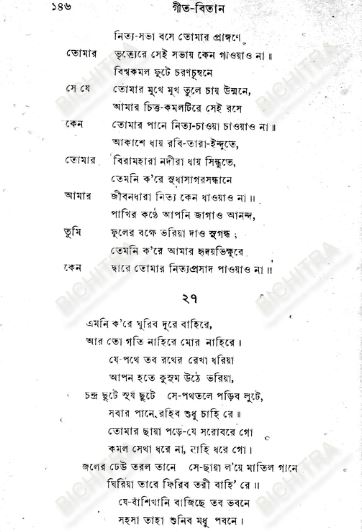 ১৪৬ গীত-বিতান
নিত্য-সভা বসে তোমার প্রাঙ্গণে
তোমার ভৃত্যেরে সেই সভায় কেন গাওয়াও না॥
বিশ্বকমল ফুটে চরণচুম্বনে
সে যে তোমার মুখে মুখ তুলে চায় উন্মনে,
আমার চিত্ত-কমলটিরে সেই রসে
কেন তোমার পানে নিত্য-চাওয়া চাওয়াও না॥
আকাশে ধায় রবি-তারা-ইন্দুতে,
তোমার বিরামহারা নদীরা ধায় সিন্ধুতে,
তেমনি ক'রে সুধাসাগরসন্ধানে
আমার জীবনধারা নিত্য কেন ধাওয়াও না॥
পাখির কণ্ঠে আপনি জাগাও আনন্দ,
তুমি ফুলের বক্ষে ভরিয়া দাও সুগন্ধ;
তেমনি ক'রে আমার হৃদয়ভিক্ষুরে
কেন দ্বারে তোমার নিত্যপ্রসাদ পাওয়াও না॥
২৭
এমনি ক'রে ঘুরিব দূরে বাহিরে,
আর তো গতি নাহিরে মোর নাহিরে।
যে-পথে তব রথের রেখা ধরিয়া
আপন হতে কুসুম উঠে ভরিয়া,
চন্দ্র ছুটে সূর্য ছুটে সে-পথতলে পড়িব লুটে,
সবার পানে রহিব শুধু চাহি রে॥
তোমার ছায়া পড়ে-যে সরোবরে গো
কমল সেথা ধরে না, নাহি ধরে গো।
জলের ঢেউ তরল তানে সে-ছায়া ল'য়ে মাতিল গানে
ঘিরিয়া তারে ফিরিব তরী বাহি' রে॥
যে-বাঁশিখানি বাজিছে তব ভবনে
সহসা তাহা শুনিব মধু পবনে।
BICHITRA
BICHITRA
BICHITRA
BICHITRA
BICHITRA
BICHITRA